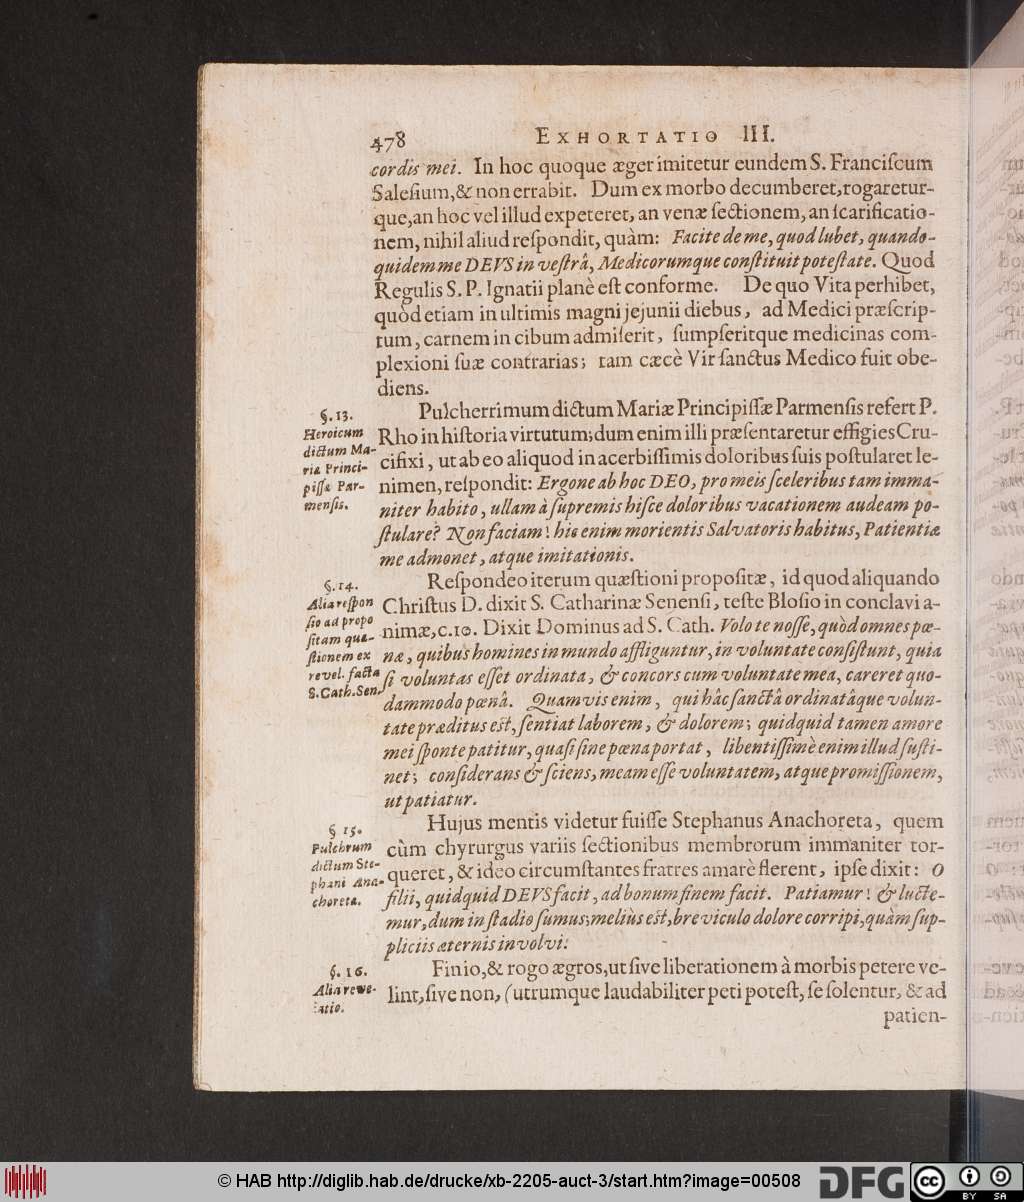 478 EXHORTATIO III.
cordis mei. In hoc quoque æger imitetur eundem S. Franciſcum
Saleſium, & non errabit. Dum ex morbo decumberet, rogaretur-
que, an hoc vel illud expeteret, an venæ ſectionem, an ſcarificatio-
nem, nihil aliud reſpondit, quàm: Facite de me, quod lubet, quando-
quidem me DEVS in veſtrâ, Medicorumque conſtituit poteſtate. Quod
Regulis S. P. Ignatii planè eſt conforme. De quo Vita perhibet,
quòd etiam in ultimis magni jejunii diebus, ad Medici præſcrip-
tum, carnem in cibum admiſerit, ſumpſeritque medicinas com-
plexioni ſuæ contrarias; tam cæcè Vir ſanctus Medico fuit obe-
diens.
§. 13.
Heroicum
dictum Ma-
riæ Princi-
piſſæ Par-
menſis.
Pulcherrimum dictum Mariæ Principiſſæ Parmenſis refert P.
Rho in hiſtoria virtutum; dum enim illi præſentaretur effigies Cru-
cifixi, ut ab eo aliquod in acerbiſſimis doloribus ſuis poſtularet le-
nimen, reſpondit: Ergone ab hoc DEO, pro meis ſceleribus tam imma-
niter habito, ullam à ſupremis hiſce doloribus vacationem audeam po-
ſtulare? Non faciam! hic enim morientis Salvatoris habitus, Patientiæ
me admonet, atque imitationis.
§. 14.
Alia reſpon
ſio ad propo
ſitam quæ-
ſtionem ex
revel. facta
S. Cath. Sen.
Reſpondeo iterum quæſtioni propoſitæ, id quod aliquando
Chriſtus D. dixit S. Catharinæ Senenſi, teſte Bloſio in conclavi a-
nimæ, c. 10. Dixit Dominus ad S. Cath. Volo te noſſe, quòd omnes pœ-
næ, quibus homines in mundo affliguntur, in voluntate conſiſtunt, quia
ſi voluntas eſſet ordinata, & concors cum voluntate mea, careret quo-
dammodo pœnâ. Quamvis enim, qui hâc ſanctâ ordinatâque volun-
tate præditus eſt, ſentiat laborem, & dolorem; quidquid tamen amore
mei ſponte patitur, quaſi ſine pœna portat, libentiſſimè enim illud ſuſti-
net; conſiderans & ſciens, meam eſſe voluntatem, atque promiſſionem,
ut patiatur.
§ 15.
Pulchrum
dictum Ste-
phani Ana-
choretæ.
Hujus mentis videtur fuiſſe Stephanus Anachoreta, quem
cùm chyrurgus variis ſectionibus membrorum immaniter tor-
queret, & ideo circumſtantes fratres amarè flerent, ipſe dixit: O
filii, quidquid DEVS facit, ad bonum finem facit. Patiamur! & lucte-
mur, dum in ſtadio ſumus; melius eſt, breviculo dolore corripi, quàm ſup-
pliciis æternis involvi.
§. 16.
Alia reve-
latio.
Finio, & rogo ægros, ut ſive liberationem à morbis petere ve-
lint, ſive non, (utrumque laudabiliter peti poteſt, ſe ſolentur, & ad
patien-
© HAB http://diglib.hab.de/drucke/xb-2205-auct-3/start.htm?image=00508
DFG
cc
BY SA